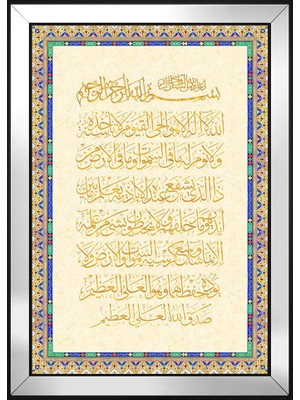 بسم الله الرحمن الرحيم
الله لا اله الا هو الحي القيوم لا تأخذه سنة
ولا نوم له ما في السموات وما في الارض من
ذا الذي يشفع عنده الا باذنه يعلم ما بين
ايديهم وما خلفهم ولا يحيطون بشيء من علمه
الا بما شاء وسع كرسيه السموات والارض ولا
يؤده حفظهما وهو العلي العظيم
صدق الله العلي العظيم